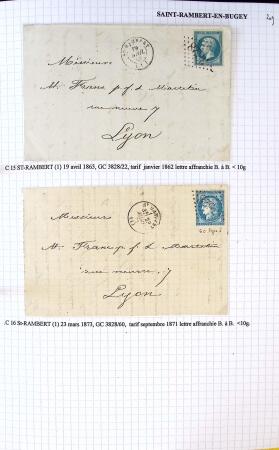 SAINT-RAMBERT-EN-BUGEY
Monsieur
M. Franc p. f. d Martelin
rue neuve 7
Lyon
C 15 ST-RAMBERT (1) 19 avril 1863, GC 3828/22, tarif janvier 1862 lettre affranchie B. à B. < 10g
Monsieur
M. Franc p. f. d Martelin
rue neuve, 7
Lyon
C 16 St-RAMBERT (1) 23 mars 1873, GC 3828/60, tarif septembre 1871 lettre affranchie B. à B. <10g.